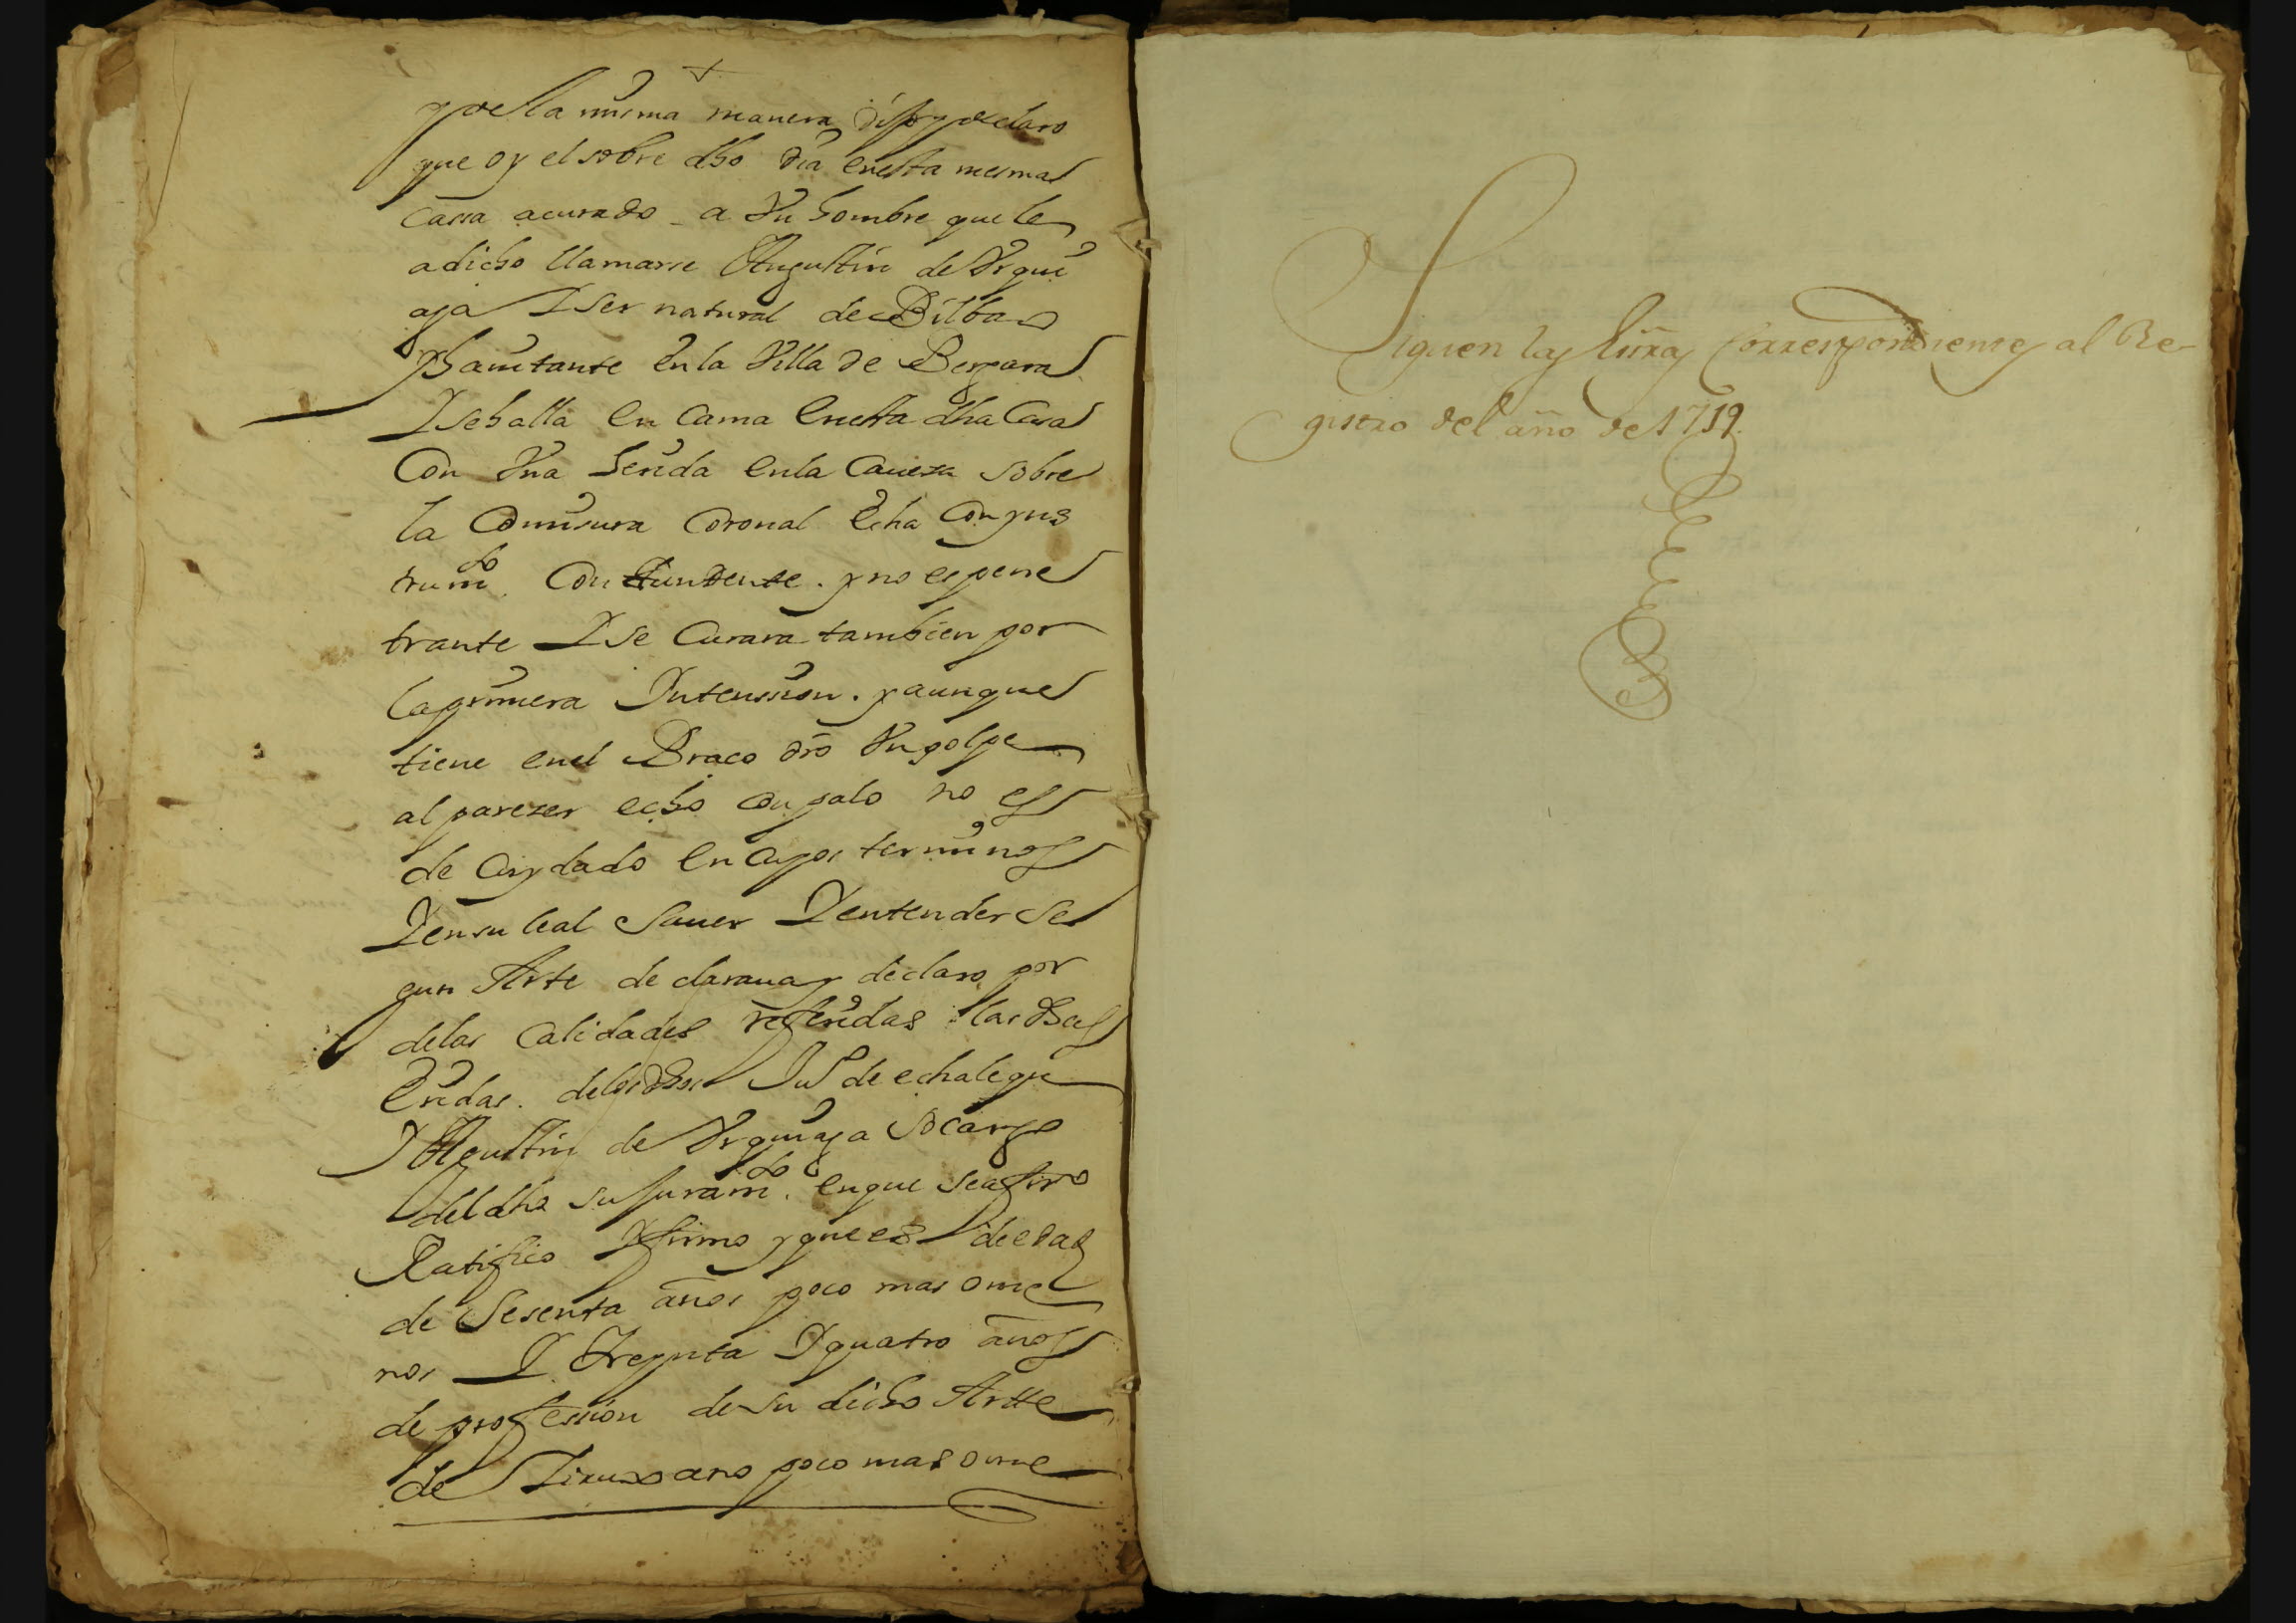 y de la misma manera dijo y declaro
que oy el sobre dho dia en esta mesma
Cassa acurado a Vn hombre que le
a dicho llamarse Augustin de Vrqui
aja Y ser natural de Bilbao
Y hauitante en la Villa de Bergara
Y se halla en Cama en esta dha Casa
Con Vna herida en la Caueza sobre
la Comisura Coronal echa Con yns
trumto Contundente. y no es pene
trante Y se Curara tambien por
la primera Yntension. y aunque
tiene en el Braco dro Vn golpe
al parezer echo con palo no es
de Cuydado en Cuyos terminos
Y en su leal Sauer Y entender Se
gun Arte declaraua y declaro por
de las Calidades referidas las dhas
Eridas. de los dhos Ju de echalegui
Y Agustin de Vrquiaja So cargo
del dho su Juramto. en que se afirmo
Ratifico Y firmo y que es de edad
de Sesenta años poco mas o me
nos Y Treynta Y quatro años
de profession de su dicho Artte
de Ziruxano poco mas o me
Siguen las Correspondientes al Re-
gistro del año de 1719.